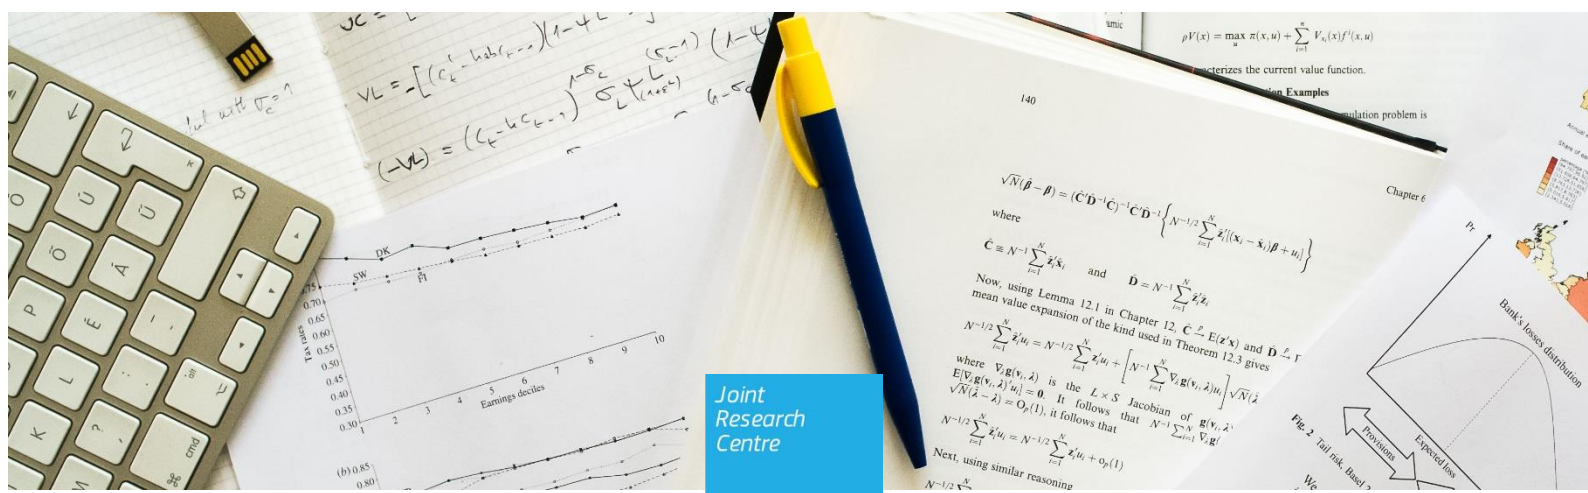 VL = -[(
(-VL) = (
but with σc = 1
K
Ő
Ú
Ü
Ő
Á
P
É
-
L
K
? ,
alt
cmd
M
DK
SW
FI
0.75
0.70
0.65
0.60
0.55
0.50
0.45
0.40
0.35
0.30
Tax rates
1 2 3 4 5 6 7 8 9 10
Earnings deciles
(b) 0.85
0.80
Joint
Research
Centre
ρV(x) = max π(x, u) + ∑ V_{x_i}(x)f^i(x, u)
characterizes the current value function.
Examples
problem is
140
Chapter 6
√N(β̂ − β) = (Ĉ′D̂⁻¹Ĉ)⁻¹Ĉ′D̂⁻¹{N^{-1/2} ∑_{i=1}^N ẑ′_i[(x_i − x̂_i)β + u_i]}
where
Ĉ ≡ N⁻¹ ∑_{i=1}^N ẑ′_i x̂_i and D̂ = N⁻¹ ∑_{i=1}^N ẑ′_i ẑ_i
Now, using Lemma 12.1 in Chapter 12, Ĉ →p E(z′x) and D̂ →p
mean value expansion of the kind used in Theorem 12.3 gives
N^{-1/2} ∑_{i=1}^N ẑ′_i u_i = N^{-1/2} ∑_{i=1}^N z′_i u_i + [N⁻¹ ∑_{i=1}^N ∇_λ g(v_i, λ)u_i] √N(λ̂
where ∇_λ g(v_i, λ) is the L × S Jacobian of g(v_i, λ)
E[∇_λ g(v_i, λ)′u_i] = 0. It follows that N⁻¹ ∑_{i=1}^N ∇_λ g(
√N(λ̂ − λ) = O_p(1), it follows that
N^{-1/2} ∑_{i=1}^N ẑ′_i u_i = N^{-1/2} ∑_{i=1}^N z′_i u_i + o_p(1)
Next, using similar reasoning
N^{-1/2} ∑
Pr
Bank's losses distribution
Provisions
Expected loss
Fig. 2 Tail risk, Basel 2
We
Annual
Share of